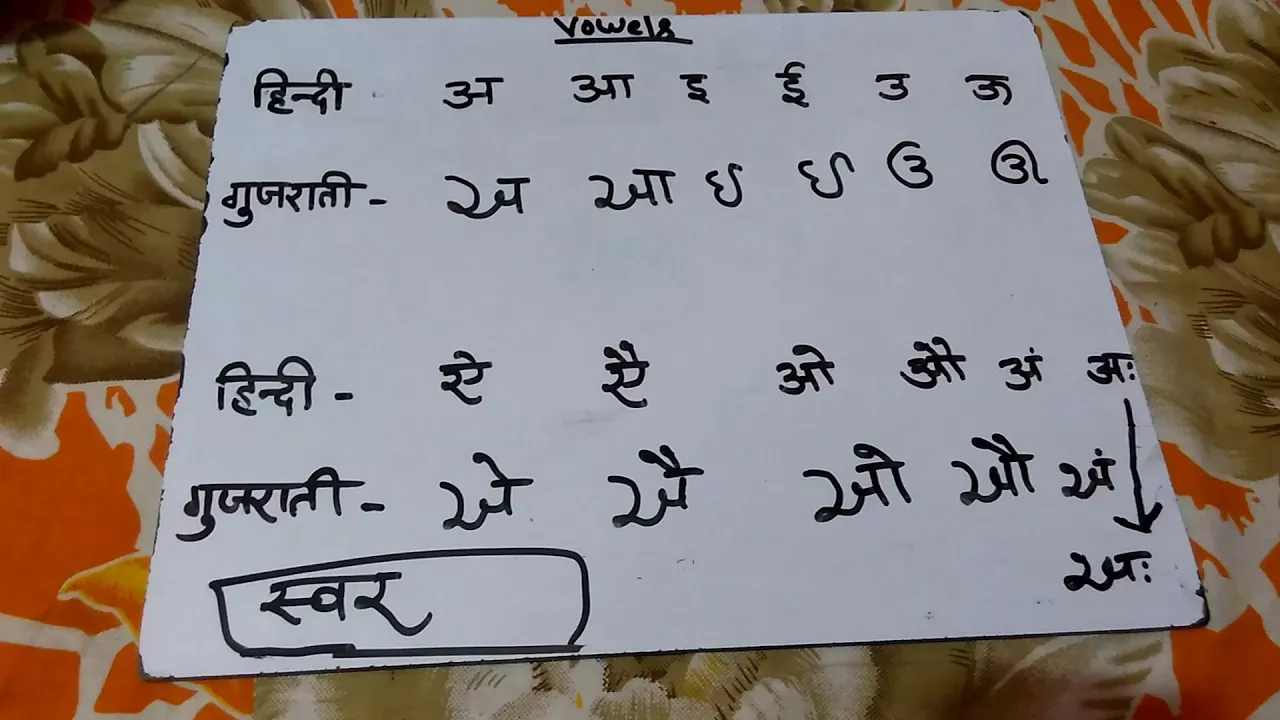 Vowels
हिन्दी - अ आ इ ई उ ऊ
गुजराती - અ આ ઇ ઈ ઉ ઊ
हिन्दी - ऐ ऐ ओ औ अं अः
गुजराती - એ ઐ ઓ ઔ અં
અઃ
स्वर